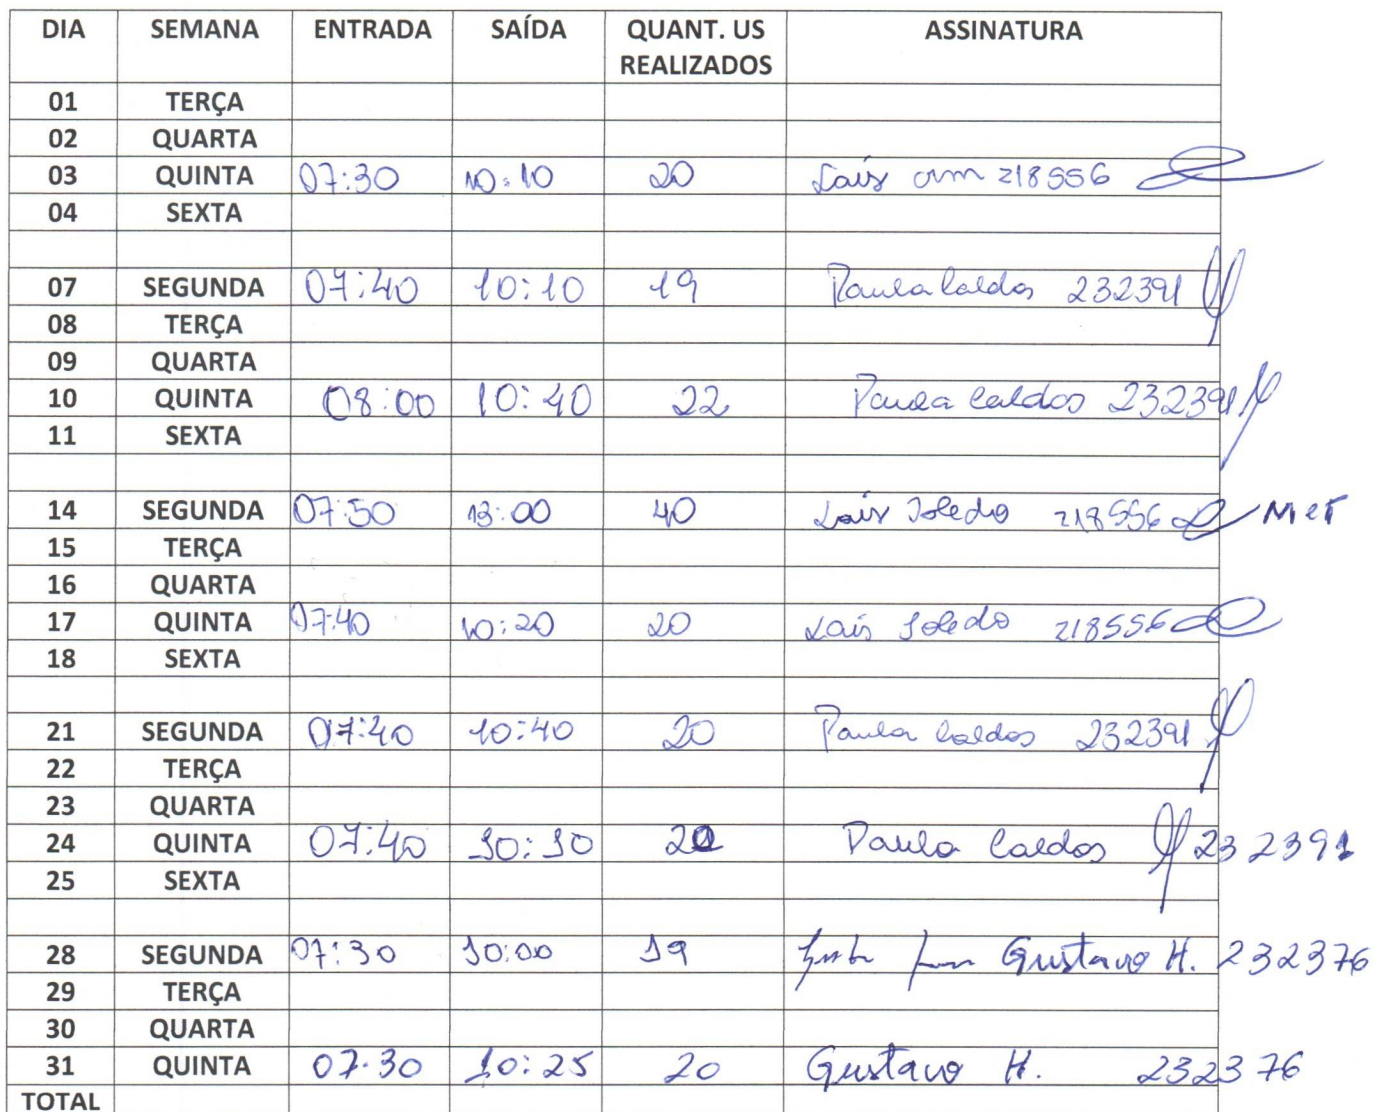 DIA SEMANA ENTRADA SAÍDA QUANT. US REALIZADOS ASSINATURA
01 TERÇA
02 QUARTA
03 QUINTA 07:30 10:10 20 Laís crm 218556
04 SEXTA
07 SEGUNDA 07:40 10:10 19 Paula Caldas 232391
08 TERÇA
09 QUARTA
10 QUINTA 08:00 10:40 22 Paula Caldas 232391
11 SEXTA
14 SEGUNDA 07:50 13:00 40 Laís Toledo 218556
15 TERÇA
16 QUARTA
17 QUINTA 07:40 10:20 20 Laís Toledo 218556
18 SEXTA
21 SEGUNDA 07:40 10:40 20 Paula Caldas 232391
22 TERÇA
23 QUARTA
24 QUINTA 07:40 10:10 Paula Caldas 232391
25 SEXTA
28 SEGUNDA 07:30 10:00 19 Gustavo H. 232376
29 TERÇA
30 QUARTA
31 QUINTA 07:30 10:25 20 Gustavo H. 232376
TOTAL